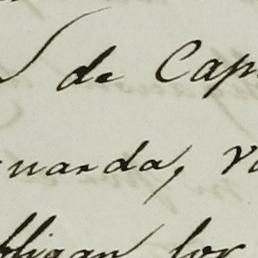 de Cap
uarda, v
bligan for